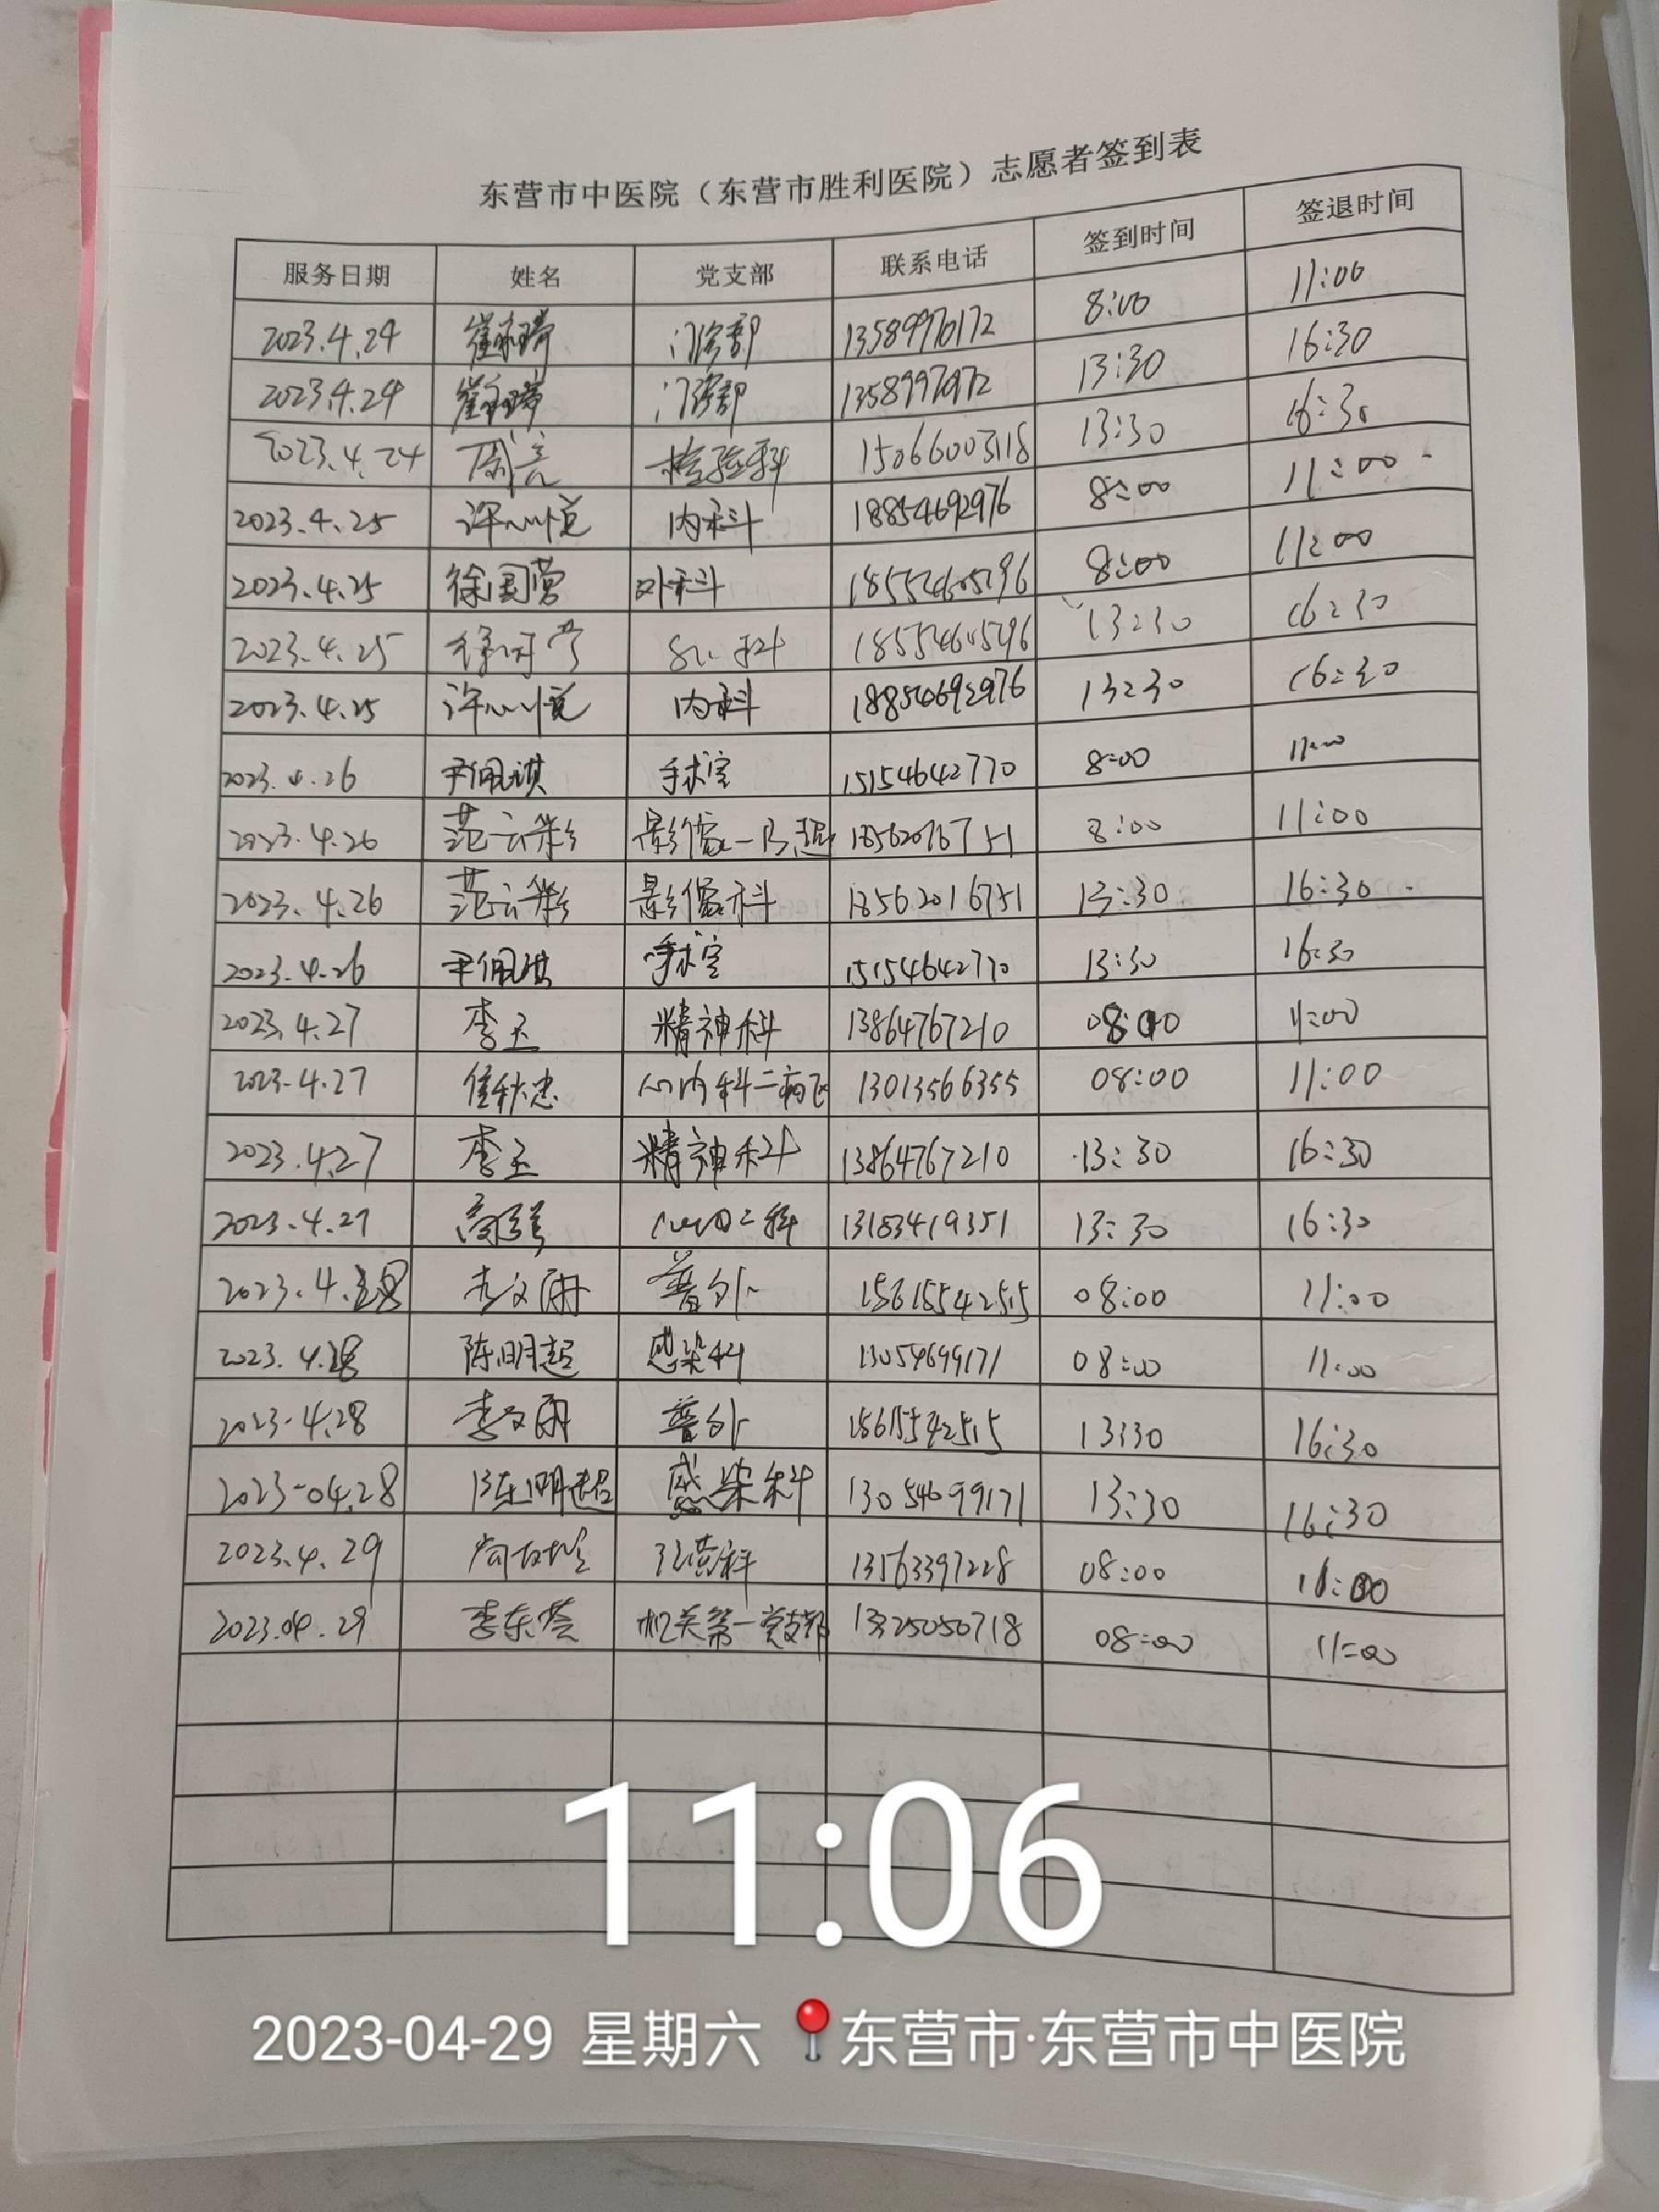 东营市中医院（东营市胜利医院）志愿者签到表
服务日期 姓名 党支部 联系电话 签到时间 签退时间
2023.4.24 门诊部 8:00 11:00
2023.4.24 门诊部 13:30 16:30
2023.4.24 检验科 15066003118 13:30 16:30
2023.4.25 许心悦 内科 18854692976 8:00 11:00
2023.4.25 徐国营 外科 18554605796 8:00 11:00
2023.4.25 18554605796 13:30 16:30
2023.4.25 许心悦 内科 18854692976 13:30 16:30
2023.4.26 尹佩琪 手术室 15154642770 8:00 11:00
2023.4.26 范云彩 8:00 11:00
2023.4.26 范云彩 影像科 18562016751 13:30 16:30
2023.4.26 尹佩琪 手术室 15154642770 13:30 16:30
2023.4.27 李玉 精神科 13864767210 08:00 11:00
2023.4.27 心内科二病区 13013566355 08:00 11:00
2023.4.27 李玉 精神科 13864767210 13:30 16:30
2023.4.27 13183419351 13:30 16:30
2023.4.28 李文雨 普外 15615542515 08:00 11:00
2023.4.28 陈明超 感染科 13054699171 08:00 11:00
2023.4.28 李文雨 普外 15615542515 13:30 16:30
2023-04.28 陈明超 感染科 13054699171 13:30 16:30
2023.4.29 13563397228 08:00 11:00
2023.04.29 李东荟 机关第一党支部 13325050718 08:00 11:00
11:06
2023-04-29 星期六 东营市·东营市中医院